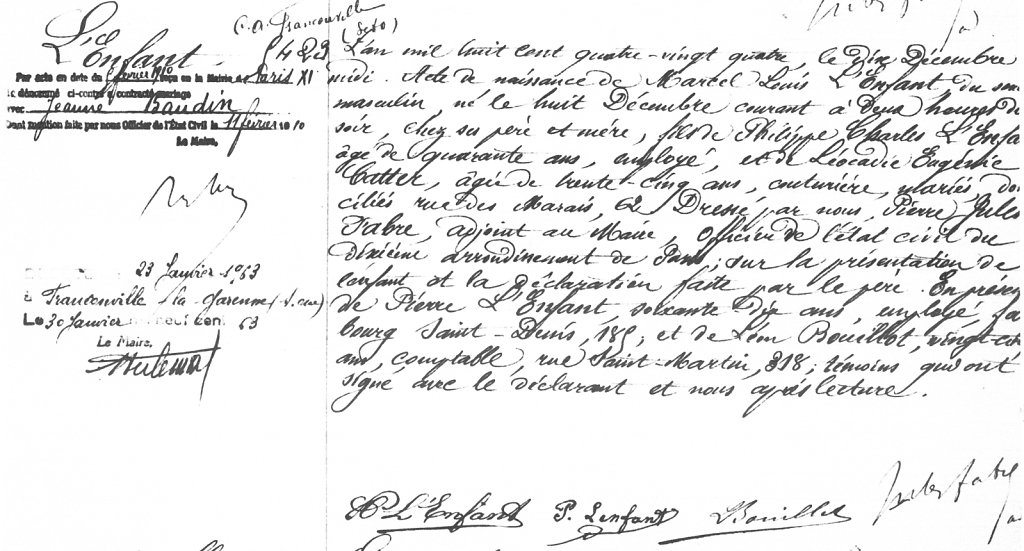 C. A. Franconville
(S&O)
L'Enfant
5423
Par acte en date du 8 février 1910 reçu en la Mairie de Paris XI
le dénommé ci-contre a contracté mariage
avec Jeanne Baudin
Dont mention faite par nous Officier de l'État Civil le 11 février 1910
Le Maire,
23 Janvier 1963
à Franconville la Garenne
Le 30 Janvier neuf cent 63
Le Maire,
L'an mil huit cent quatre-vingt quatre, le dix Décembre
midi. Acte de naissance de Marcel Louis L'Enfant du sexe
masculin, né le huit Décembre courant à deux heures du
soir, chez ses père et mère, fils de Philippe Charles L'Enfa
âgé de quarante ans, employé, et de Léocadie Eugénie
Catter, âgée de trente-cinq ans, couturière, mariés, domi
ciliés rue des Marais, 62 Dressé par nous, Pierre Jules
Fabre, adjoint au Maire, officier de l'état civil du
dixième arrondissement de Paris; sur la présentation de
l'enfant et la déclaration faite par le père. En présen
de Pierre L'Enfant, soixante dix ans, employé, fau
bourg Saint-Denis, 185; et de Léon Bouillot, vingt-cin
ans, comptable, rue Saint-Martin, 318; témoins qui ont
signé avec le déclarant et nous après lecture.
L'Enfant P. Lenfant Bouillot Jules Fabre